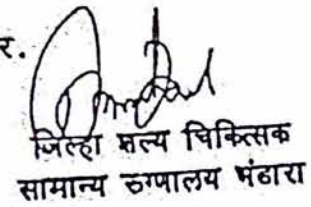 र.
जिल्हा शल्य चिकित्सक
सामान्य रुग्णालय भंडारा